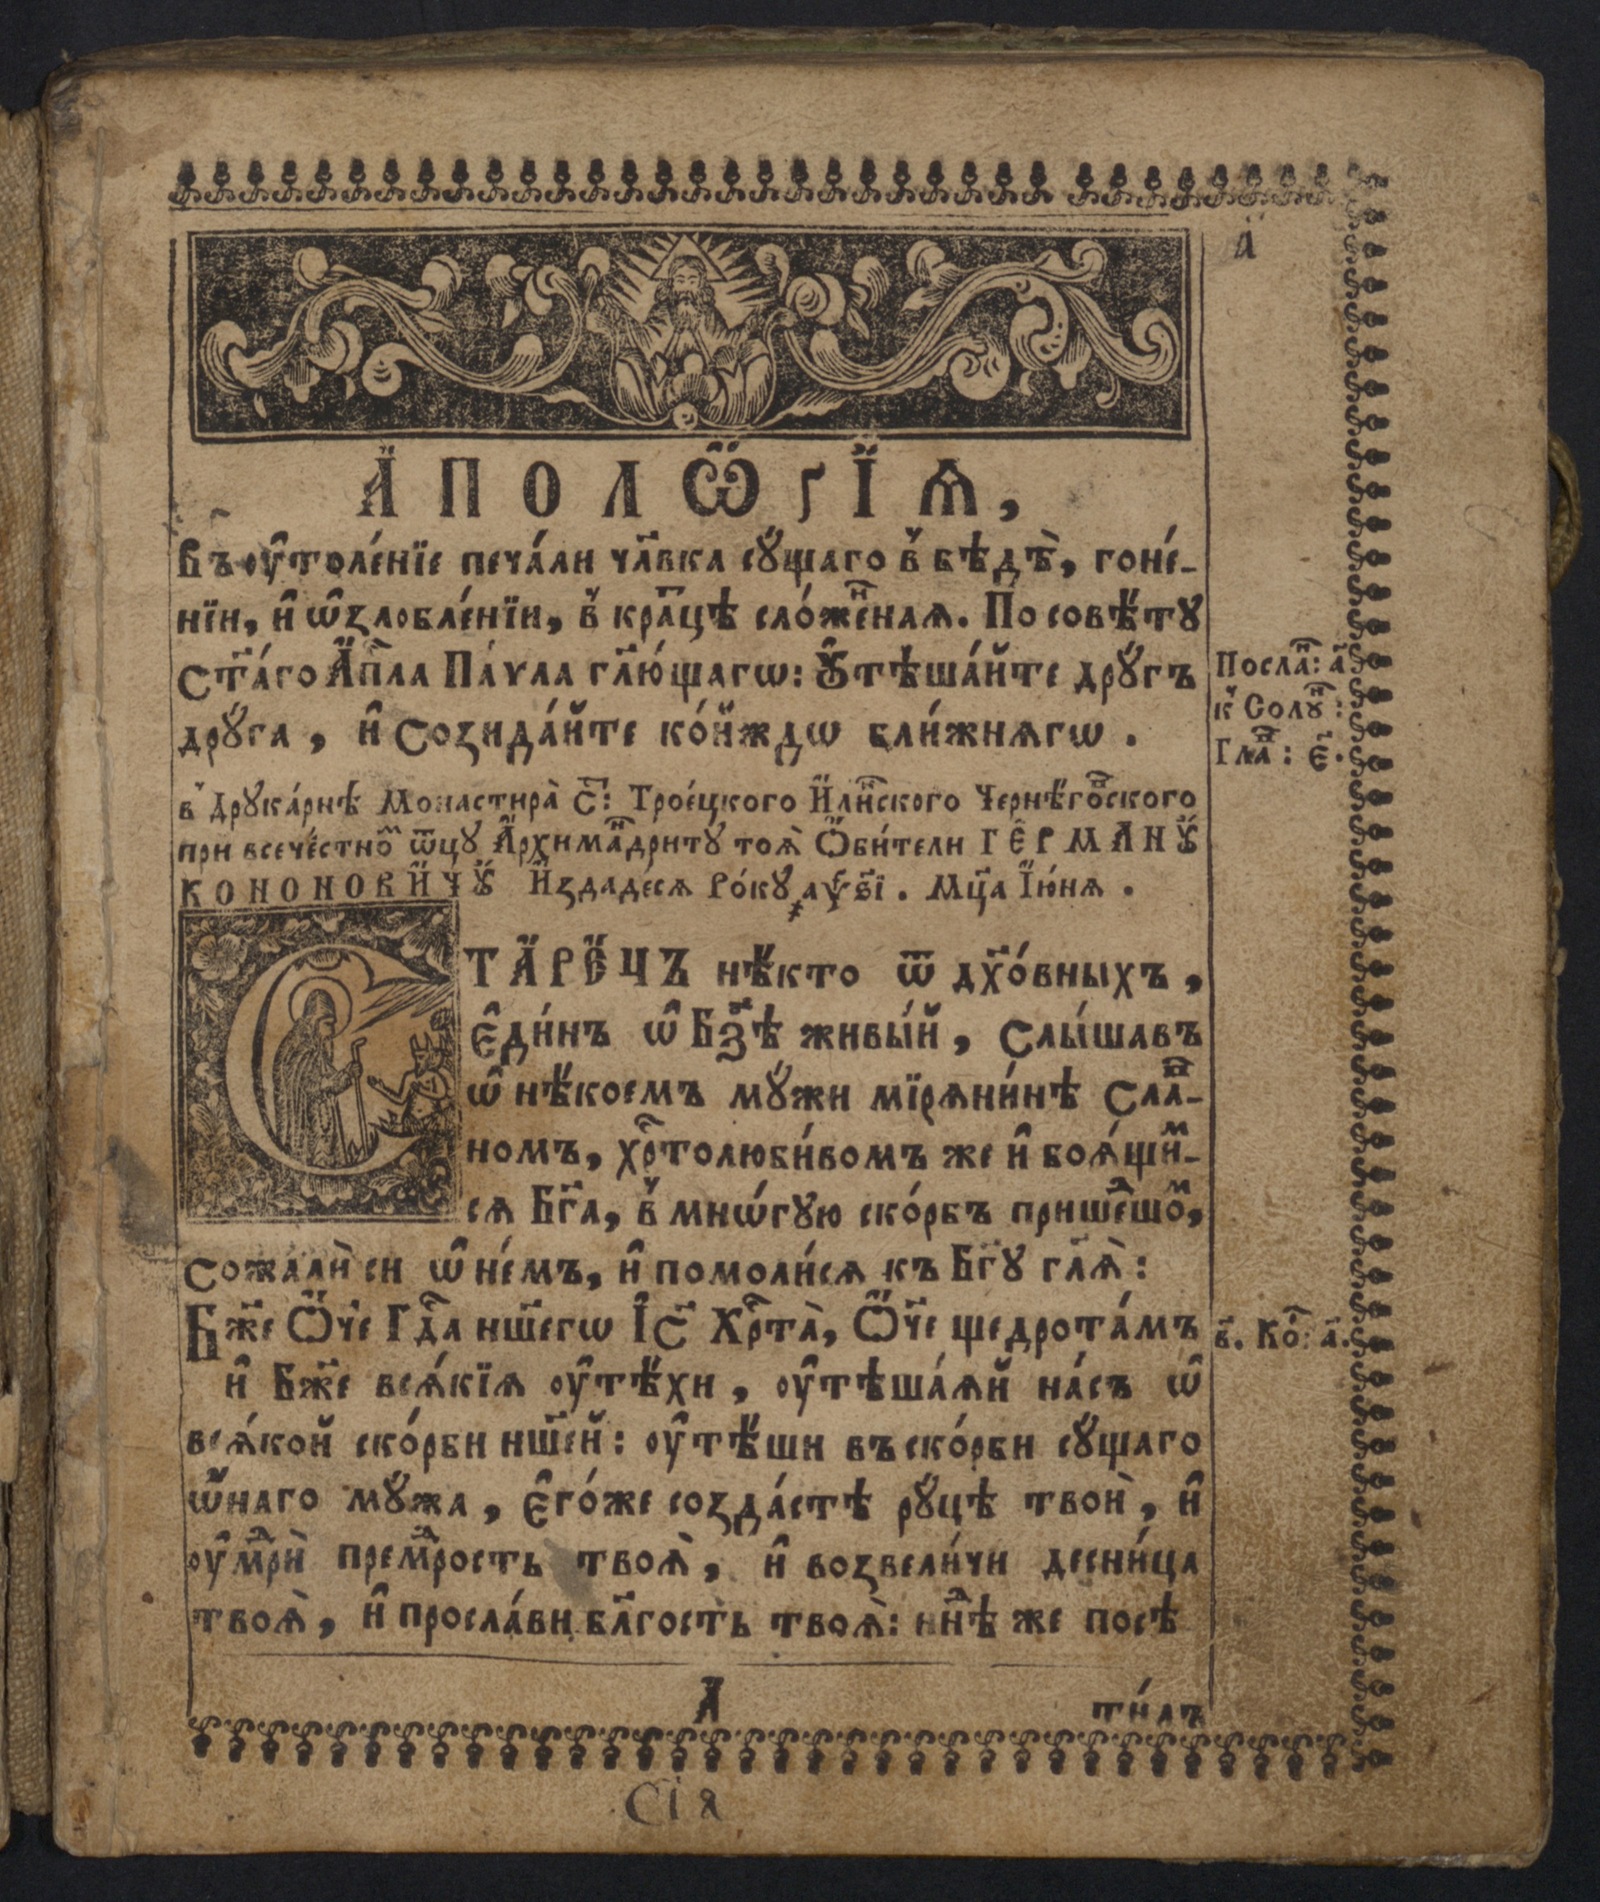 А҃
А҆ П О Л Ѿ Г І Ѧ,
Въ ᲂу҆толе́нїе печа́ли чл҃вка сꙋ́щаго в̾ бѣдѣ̀, гоне́-
нїи, и҆ ѡ҆ѕлобле́нїи, в̾ кра́тцѣ сло́женаѧ. По совѣ́тꙋ
Ст҃а́го А҆пⷭ҇ла Па́ѵла гл҃ю́щагѡ: Оу҆тѣша́йте дрꙋ́гъ
дрꙋ́га, и҆ Созида́йте ко́йждѡ бли́жнѧгѡ.
в̾ Дрꙋка́рнѣ Монастира̀ С҃: Трое́цкого И҆ли́нⷭ҇кого Чернѣ́гоⷡ҇ского
при всече́стноⷨ ѿцꙋ А҆рхимаⷩ҇дритꙋ тоѧ̀ Ѻ҆би́тели ГЕРМАНꙊ
КОНОНОВИЧꙊ И҆здаде́сѧ Ро́кꙋ ҂аѱ҃ві. Мцⷭ҇а І҆ю́нѧ.
СТАРЕЧЪ нѣ́кто ѿ дх҃о́вныхъ,
є҆ди́нъ ѡ҆ Бз҃ѣ живы́й, Слы́шавъ
ѡ҆ нѣ́коемъ мꙋ́жи мїрѧни́нѣ Слаⷡ҇-
номъ, хрⷭ҇толюби́вомъ же и҆ боѧ́щиⷨ-
сѧ Бг҃а, в̾ мнѡ́гꙋю ско́рбъ прише́ⷣшоⷨ,
Сожалѝ си ѡ҆ не́мъ, и҆ помоли́сѧ къ Бг҃ꙋ гл҃ѧ̀:
Бж҃е Ѻ҆́ч҃е Гдⷭ҇а нш҃егѡ І҆С҃ Хрⷭ҇та̀, Ѻ҆́ч҃е щедрота́мъ
и҆ Бж҃е всѧ́кїѧ ᲂу҆тѣ́хи, ᲂу҆тѣша́ѧй на́съ ѡ҆
всѧ́кой ско́рби нш҃ей: ᲂу҆тѣ́ши въ ско́рби сꙋ́щаго
ѡ҆́наго мꙋ́жа, є҆го́же созда́стѣ рꙋ́цѣ твоѝ, и҆
ᲂу҆мⷣрѝ премⷣрость твоѧ̀, и҆ возвели́чи десни́ца
твоѧ̀, и҆ просла́ви бл҃гость твоѧ̀: нн҃ѣ же посѣ
А
ти́лъ
Посла́ⷩ: а҃
к̾ Солꙋⷩ:
Глаⷡ: є҃.
в҃. Ко́р: а҃.
Сія